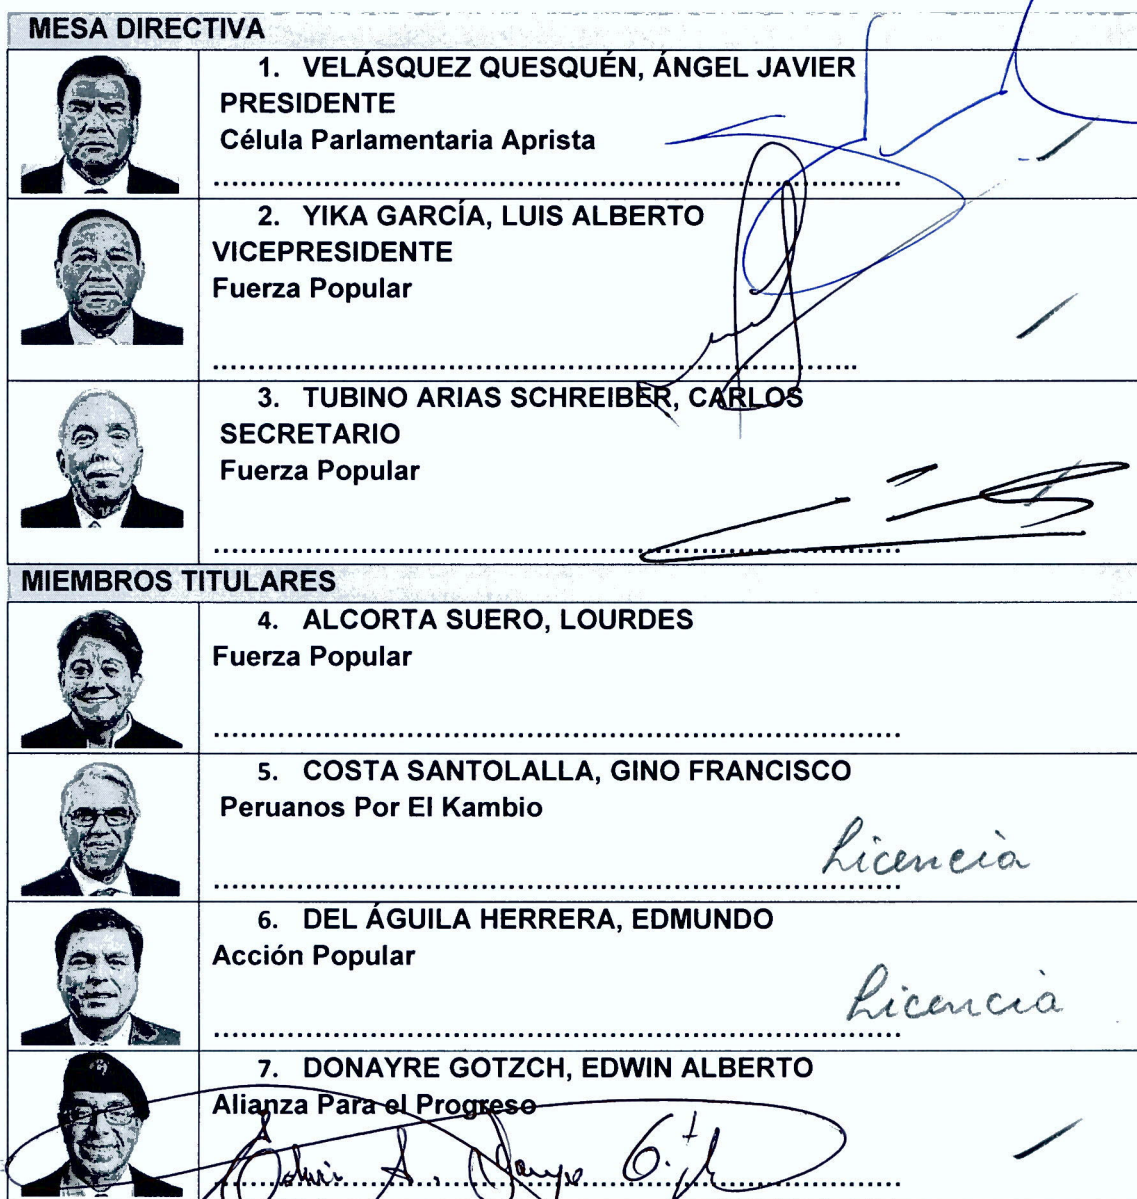 MESA DIRECTIVA
1. VELÁSQUEZ QUESQUÉN, ÁNGEL JAVIER
PRESIDENTE
Célula Parlamentaria Aprista
2. YIKA GARCÍA, LUIS ALBERTO
VICEPRESIDENTE
Fuerza Popular
3. TUBINO ARIAS SCHREIBER, CARLOS
SECRETARIO
Fuerza Popular
MIEMBROS TITULARES
4. ALCORTA SUERO, LOURDES
Fuerza Popular
5. COSTA SANTOLALLA, GINO FRANCISCO
Peruanos Por El Kambio
Licencia
6. DEL ÁGUILA HERRERA, EDMUNDO
Acción Popular
Licencia
7. DONAYRE GOTZCH, EDWIN ALBERTO
Alianza Para el Progreso